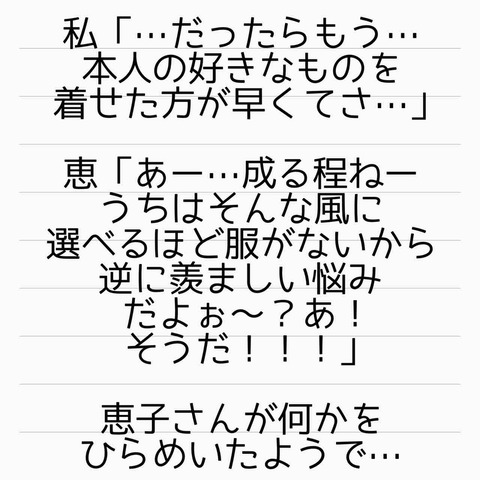 私「…だったらもう…
本人の好きなものを
着せた方が早くてさ…」
恵「あー…成る程ねー
うちはそんな風に
選べるほど服がないから
逆に羨ましい悩み
だよぉ〜？あ！
そうだ！！！」
恵子さんが何かを
ひらめいたようで…